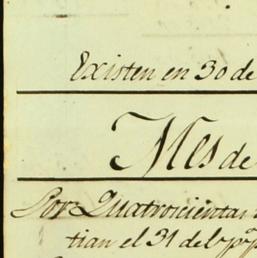 Existen en 30 de
Mes de
Por Quatrocientas
tian el 31 del